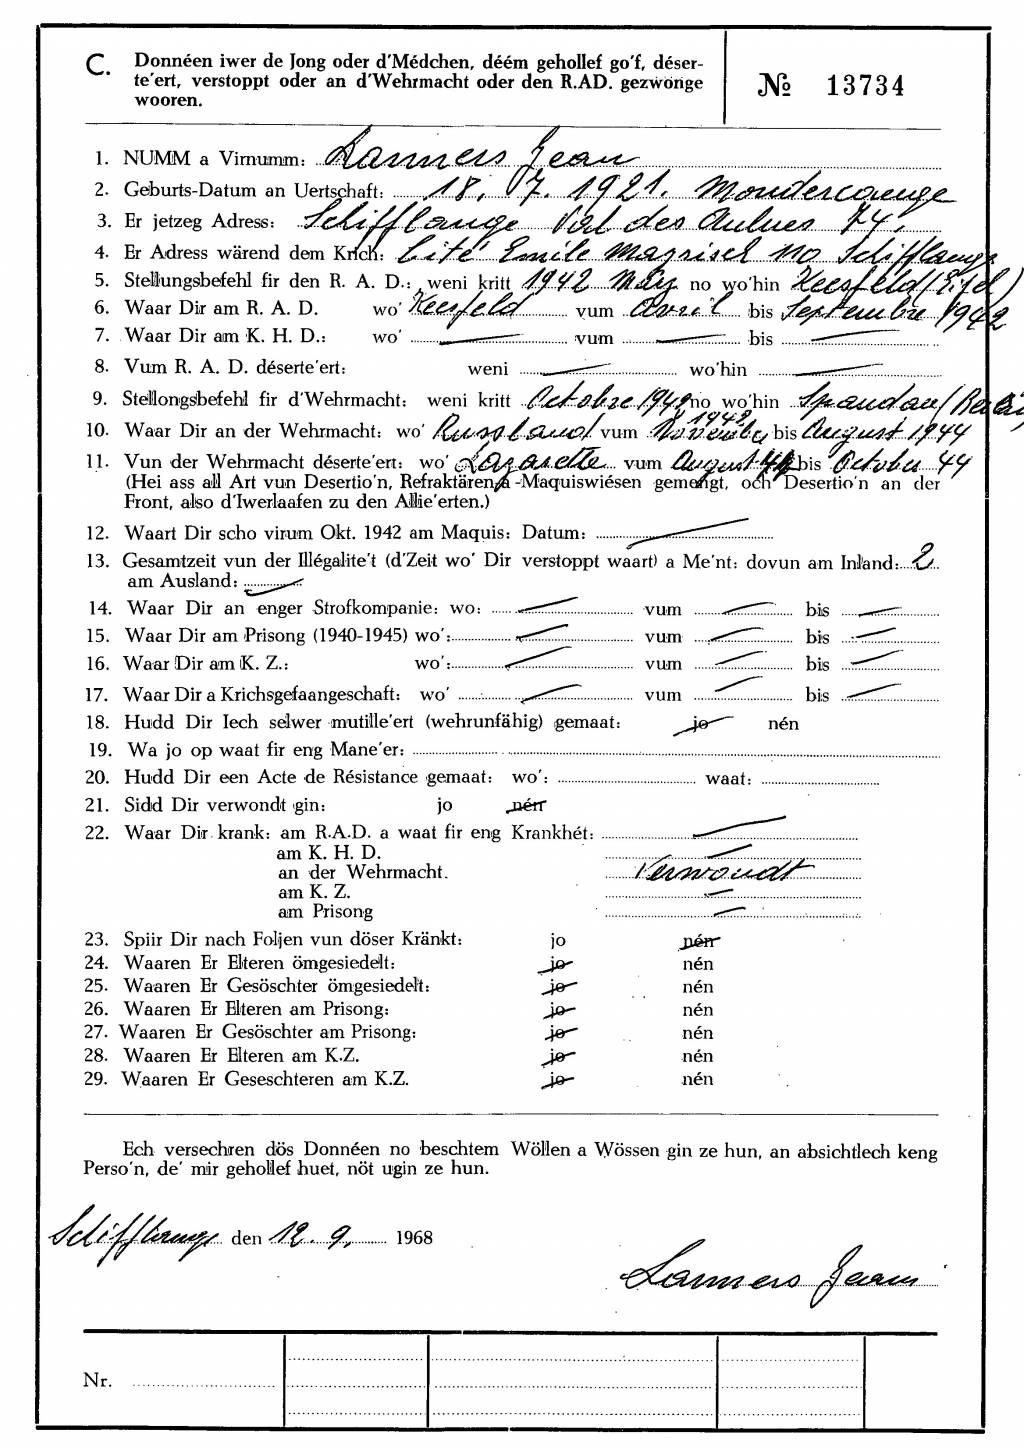 C. Donnéen iwer de Jong oder d'Médchen, déém gehollef go'f, déser-
te'ert, verstoppt oder an d'Wehrmacht oder den R.AD. gezwonge
wooren.
№ 13734
1. NUMM a Virnumm: Lanners Jean
2. Geburts-Datum an Uertschaft: 18. 7. 1921. Mondercange
3. Er jetzeg Adress: Schifflange Val des Aulnes 74,
4. Er Adress wärend dem Krich: Cité Emile Mayrisch 110 Schifflange
5. Stellungsbefehl fir den R. A. D.: weni kritt 1942 May no wo'hin Keesfeld (Eifel)
6. Waar Dir am R. A. D. wo' Keesfeld vum Avril bis Septembre 1942
7. Waar Dir am K. H. D.: wo' — vum — bis —
8. Vum R. A. D. déserte'ert: weni — wo'hin —
9. Stellongsbefehl fir d'Wehrmacht: weni kritt Octobre 1942 no wo'hin Spandau (Berlin)
10. Waar Dir an der Wehrmacht: wo' Russland vum Novembre 1942 bis August 1944
11. Vun der Wehrmacht déserte'ert: wo' Lazarette vum August 44 bis October 44
(Hei ass all Art vun Desertio'n, Refraktären -Maquiswiésen gemengt, och Desertio'n an der
Front, also d'Iwerlaafen zu den Allie'erten.)
12. Waart Dir scho virum Okt. 1942 am Maquis: Datum: —
13. Gesamtzeit vun der Illégalite't (d'Zeit wo' Dir verstoppt waart) a Me'nt: dovun am Inland: 2
am Ausland: —
14. Waar Dir an enger Strofkompanie: wo: — vum — bis —
15. Waar Dir am Prisong (1940-1945) wo': — vum — bis —
16. Waar Dir am K. Z.: wo': — vum — bis —
17. Waar Dir a Krichsgefaangeschaft: wo' — vum — bis —
18. Hudd Dir Iech selwer mutille'ert (wehrunfähig) gemaat: jo nén
19. Wa jo op waat fir eng Mane'er:
20. Hudd Dir een Acte de Résistance gemaat: wo': waat:
21. Sidd Dir verwondt gin: jo nén
22. Waar Dir krank: am R.A.D. a waat fir eng Krankhét: —
am K. H. D. —
an der Wehrmacht. Verwondt
am K. Z. —
am Prisong —
23. Spiir Dir nach Foljen vun döser Kränkt: jo nén
24. Waaren Er Elteren ömgesiedelt: jo nén
25. Waaren Er Gesöschter ömgesiedelt: jo nén
26. Waaren Er Elteren am Prisong: jo nén
27. Waaren Er Gesöschter am Prisong: jo nén
28. Waaren Er Elteren am K.Z. jo nén
29. Waaren Er Geseschteren am K.Z. jo nén
Ech versechren dös Donnéen no beschtem Wöllen a Wössen gin ze hun, an absichtlech keng
Perso'n, de' mir gehollef huet, nöt ugin ze hun.
Schifflange den 12. 9. 1968
Lanners Jean
Nr.